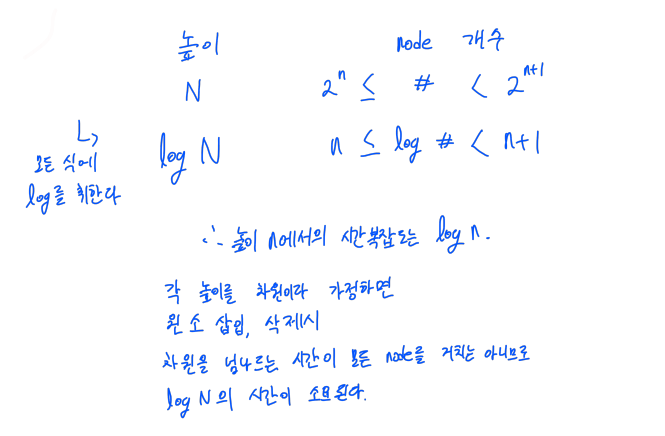 높이 node 개수
N 2ⁿ ≤ # < 2ⁿ⁺¹
↳ log N n ≤ log # < n+1
모든 식에
log를 취한다
∴ 높이 n에서의 시간복잡도는 log n.
각 높이를 차원이라 가정하면
원소 삽입, 삭제시
차원을 넘나르는 시간이 모든 node를 거치는 아니므로
log N의 시간이 소요된다.